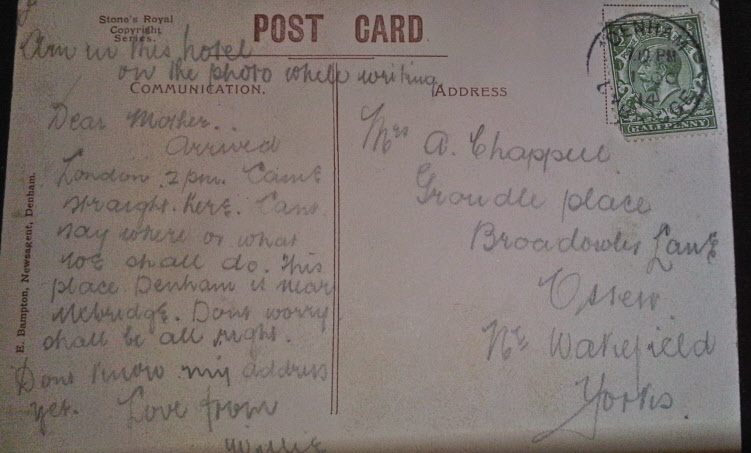 Stone's Royal
Copyright
Series.
POST CARD
Am in this hotel
on the photo while writing
COMMUNICATION.
ADDRESS
Dear Mother.
Arrived
London 2 pm. Came
straight here. Cant
say where or what
we shall do. This
place Denham is near
Uxbridge. Dont worry
shall be all right.
Dont know my address
yet. Love from
Willie
Mrs A. Chappell
Groudle place
Lane
Ossett
Nr Wakefield
Yorks.
E. Bampton, Newsagent, Denham.
DENHAM
HALFPENNY